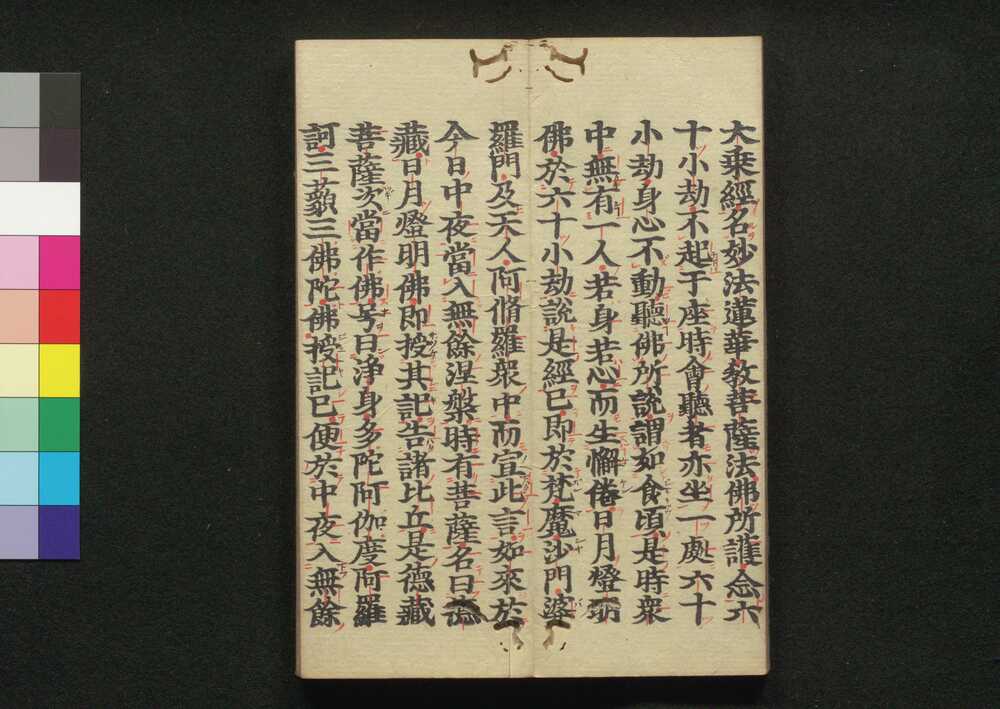 大乗經名妙法蓮華教菩薩法佛所護念六
十小劫不起于座時會聽者亦坐一處六十
小劫身心不動聽佛所說謂如食頃是時衆
中無有一人若身若心而生懈倦日月燈明
佛於六十小劫說是經已即於梵魔沙門婆
羅門及天人阿脩羅衆中而宣此言如來於
今日中夜當入無餘涅槃時有菩薩名曰德
藏日月燈明佛即授其記告諸比丘是德藏
菩薩次當作佛号曰淨身多陀阿伽度阿羅
訶三藐三佛陀佛授記已便於中夜入無餘